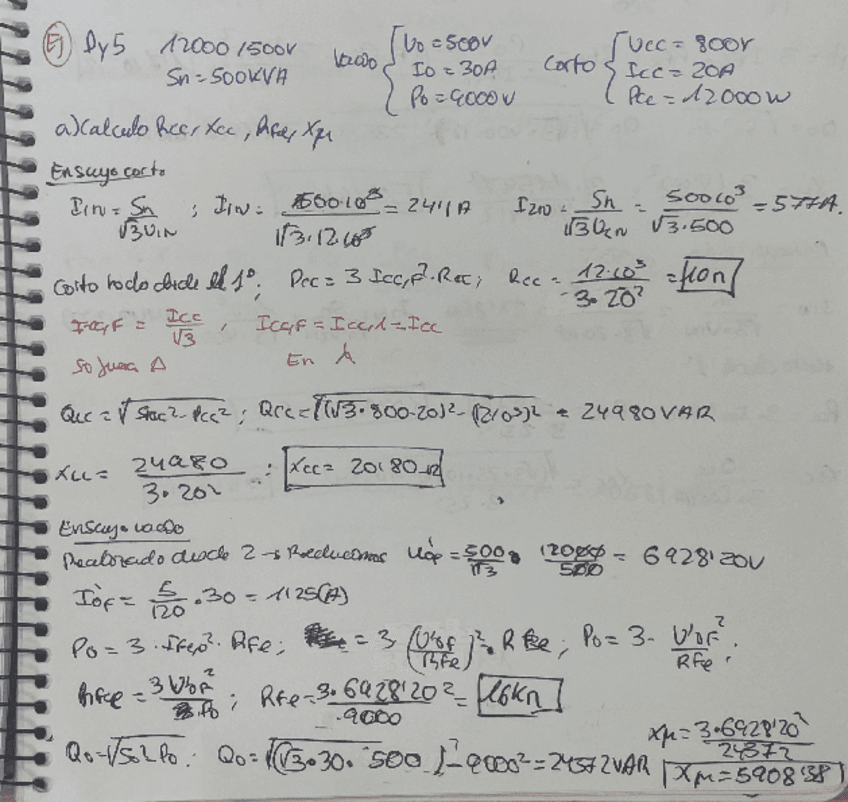 Ej Dy5 12000/500V Vacío { Uo = 500V Corto { Ucc = 800V
Sn = 500KVA Io = 30A Icc = 20A
Po = 9000 W Pcc = 12000W
a) Calculo Rcc, Xcc, Rfe, Xμ
Ensayo corto
I1N = Sn/√3U1N ; I1N = 500·10³/√3·12·10³ = 24'1 A I2N = Sn/√3U2N = 500·10³/√3·500 = 577A.
Corto hecho desde el 1º; Pcc = 3 Icc,F²·Rcc; Rcc = 12·10³/3·20² = 10Ω
Icc,F = Icc/√3 ; Icc,F = Icc,L = Icc
Si fuera Δ En Y
Qcc = √Scc²-Pcc² ; Qcc = √(√3·800·20)²-(12·10³)² = 24980 VAR
Xcc = 24980/3·20² ∴ Xcc = 20'80 Ω
Ensayo vacío
Realizado desde 2 → Reducimos U'oF = 500/√3 · 12000/500 = 6928'20V
I'oF = 5/120 · 30 = 1'25(A)
Po = 3 · Ife,o² · Rfe; = 3 (U'oF/Rfe)² · Rfe ; Po = 3 · U'oF²/RFe ;
Rfe = 3U'oF²/Po ; Rfe = 3·6928'20²/9000 = 16KΩ
Qo = √So²Po : Qo = √(√3·30·500)²-9000² = 24372 VAR Xμ = 3·6928'20²/24372
Xμ = 5908'38